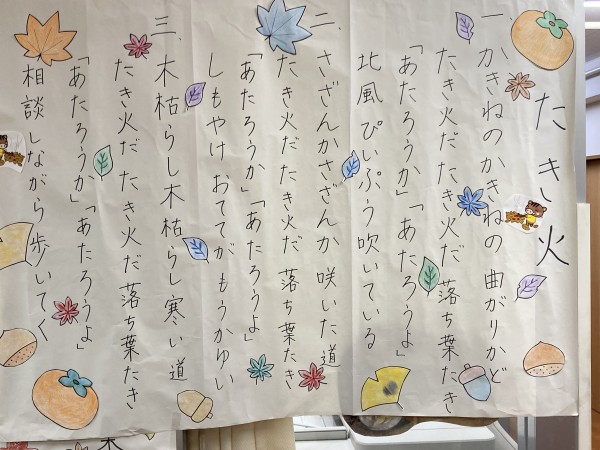 たき火
一、かきねのかきねの曲がりかど
たき火だたき火だ落ち葉たき
「あたろうか」「あたろうよ」
北風ぴいぷう吹いている
二、さざんかさざんか咲いた道
たき火だたき火だ落ち葉たき
「あたろうか」「あたろうよ」
しもやけおててがもうかゆい
三、木枯らし木枯らし寒い道
たき火だたき火だ落ち葉たき
「あたろうか」「あたろうよ」
相談しながら歩いてく